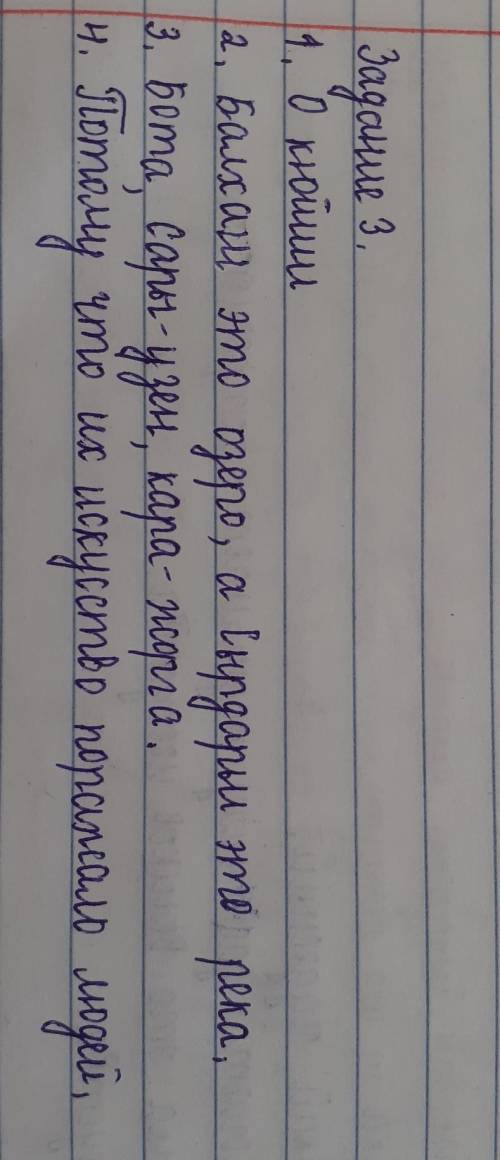 Задание 3.
1. О кюйши
2. Балхаш это озеро, а Сырдарьи это река,
3. Бота, Сары-узен, кара-жорга.
4. Потому что их искусство поражаль людей,